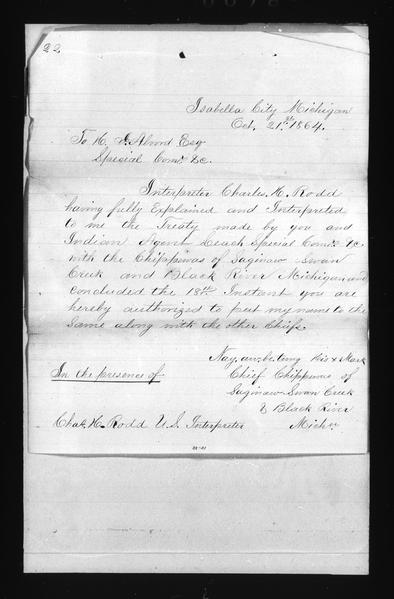 22
Isabella City Michigan
Oct, 21st 1864.
To H. J. Alvord Esq
Special Comr. &c.
Interpreter Charles. H. Rodd
having fully Explained and Interpreted
to me the Treaty made by you and
Indian Agent Leach Special Comr. &c
with the Chippewas of Saginaw Swan
Creek and Black River Michigan and
concluded the 18th Instant you are
hereby authorized to put my name to the
same along with the other Chiefs.
Nay, au, be, tung his x Mark
In the presence of
Chief Chippewas of
Saginaw Swan Creek
& Black River
Chas. H. Rodd U. S. Interpreter
Michn